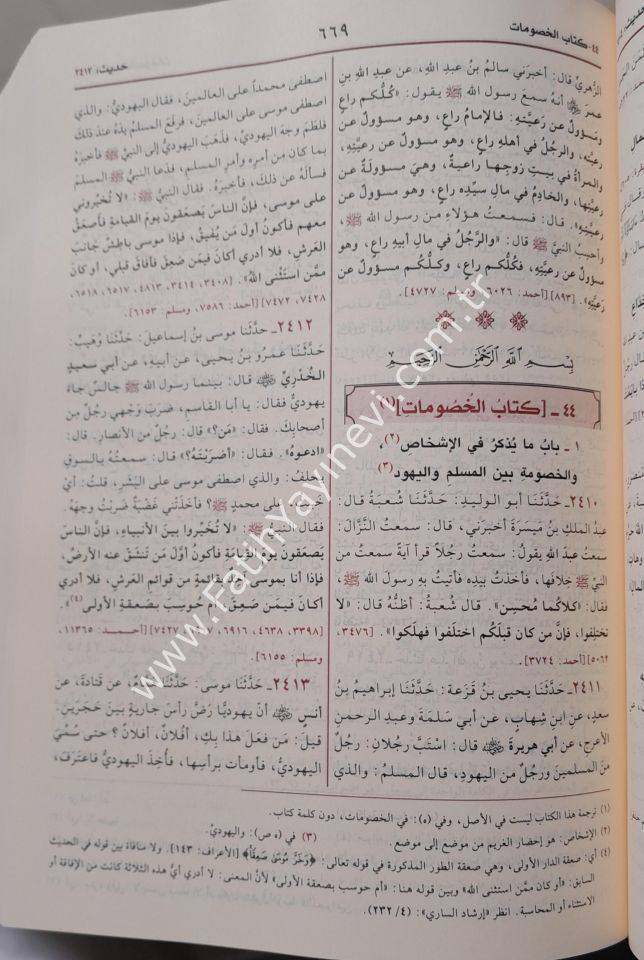 ٤٤- كتاب الخصومات
٦٦٩
حديث: ٢٤١٣
الزُّهريِّ قال: أخبرَني سالمُ بنُ عبدِ اللهِ، عن عبدِ اللهِ بنِ
عمرَ ﷺ أنه سمعَ رسول اللهِ ﷺ يقول: «كُلُّكم راعٍ
ومسؤولٌ عن رَعيَّتِهِ. فالإمامُ راعٍ، وهو مسؤولٌ عن
رعيَّته، والرجُلُ في أهلِه راعٍ، وهو مسؤولٌ عن رعيَّتِهِ،
والمرأةُ في بيتِ زوجِها راعيةٌ، وهيَ مسؤولةٌ عن
رعيَّتِها، والخادِمُ في مالِ سيِّدِه راعٍ، وهو مسؤولٌ عن
رعيَّتِهِ». قال: فسمعتُ هؤلاءِ من رسولِ الله ﷺ،
وأحسِبُ النبيَّ ﷺ قال: «والرَّجُلُ في مالِ أبيهِ راعٍ، وهو
مسؤولٌ عن رعيَّتِهِ، فكُلُّكم راعٍ، وكلُّكم مسؤولٌ عن
رَعيَّتِهِ». [٨٩٣] [أحمد: ٦٠٢٦، ومسلم: ٤٧٢٧].
بِسْمِ اللَّهِ الرَّحْمَنِ الرَّحِيمِ
٤٤ - [كتابُ الخُصوماتِ](١)
١ - بابُ ما يُذكَرُ في الإشخاصِ(٢)،
والخصومةِ بين المسلم واليهود(٣)
٢٤١٠- حَدَّثَنَا أبو الوليدِ: حَدَّثَنَا شُعبةُ قال:
عبدُ الملكِ بنُ مَيسَرَةَ أخبرَني، قال: سمعتُ النَّزَّالَ:
سمعتُ عبدَ اللهِ يقول: سمعتُ رَجُلاً قرأ آيةً سمعتُ من
النبيِّ ﷺ خِلافَها، فأخذتُ بيَدِه فأتيتُ بهِ رسولَ اللهِ ﷺ،
فقال: «كلاكُما مُحسِن». قال شعبةُ: أظنُّهُ قال: «لا
تختلِفوا، فإنَّ من كان قبلَكم اختلَفوا فهلَكوا». [٣٤٧٦،
٥٠٦٢] [أحمد: ٣٧٢٤].
٢٤١١- حَدَّثَنَا يحيى بنُ قَزَعةَ: حَدَّثَنَا إبراهيمُ بنُ
سعدٍ، عنِ ابنِ شِهابٍ، عن أبي سَلَمةَ وعبدِ الرحمنِ
الأعرجِ، عن أبي هريرةَ ﷺ قال: استَبَّ رجُلانِ: رجُلٌ
منَ المسلمينَ ورجُلٌ مِنَ اليهودِ، قال المسلمُ: والَّذي
اصطفى محمداً على العالمينَ، فقال اليهوديُّ: والذي
اصطفى موسى على العالمينَ، فرفَعَ المسلمُ يدَهُ عندَ ذلكَ
فلطَمَ وجهَ اليهوديِّ، فذَهَبَ اليهوديُّ إلى النبيِّ ﷺ فأخبرَهُ
بما كان من أمرِهِ وأمرِ المسلمِ، فدَعا النبيُّ ﷺ المسلمَ
فسألَهُ عن ذلكَ، فأخبَرَهُ. فقال النبيُّ ﷺ: «لا تُخيِّروني
على موسى، فإنَّ الناسَ يَصعَقونَ يومَ القيامةِ فأصعَقُ
معهم فأكونُ أولَ مَن يُفيقُ، فإذا موسى باطِشٌ جانبَ
العرشِ، فلا أدري أكانَ فيمَن صَعِقَ فأفاقَ قبلي، أو كانَ
ممَّنِ استَثْنى اللهُ». [٣٤٠٨، ٣٤١٤، ٤٨١٣، ٦٥١٧، ٦٥١٨،
٧٤٢٨، ٧٤٧٢] [أحمد: ٧٥٨٦، ومسلم: ٦١٥٣].
٢٤١٢- حَدَّثَنَا موسى بنُ إسماعيلَ: حَدَّثَنَا وُهَيبٌ:
حَدَّثَنَا عَمرُو بنُ يحيى، عن أبيهِ، عن أبي سعيدٍ
الخُدْريِّ ﷺ قال: بينما رسولُ اللهِ ﷺ جالسٌ جاءَ
يهوديٌّ فقال: يا أبا القاسمِ، ضرَبَ وَجْهي رجُلٌ مِن
أصحابِكَ. فقال: «مَن؟» قال: رجُلٌ منَ الأنصارِ. قال:
«ادعوهُ». فقال: «أضَرَبْتَهُ؟» قال: سمعتُهُ بالسوقِ
يحلفُ: والذي اصطفى موسى على البَشَرِ، قلتُ: أي
خبيثُ، على محمدٍ ﷺ؟ فأخَذَتْني غَضبَةٌ ضرَبتُ وجهَهُ.
فقال النبيُّ ﷺ: «لا تُخَيِّروا بينَ الأنبياءِ، فإنَّ الناسَ
يَصعَقونَ يومَ القيامةِ فأكونُ أوَّلَ مَن تَنشَقُّ عنه الأرضُ،
فإذا أنا بموسى آخذٌ بقائمةٍ من قوائمِ العرشِ، فلا أدري
أكانَ فيمَن صَعِقَ، أم حوسِبَ بصَعقةِ الأولى(٤)».
[٣٣٩٨، ٤٦٣٨، ٦٩١٦، ٦٩١٧، ٧٤٢٧] [أحمد: ١١٣٦٥،
ومسلم: ٦١٥٥].
٢٤١٣- حَدَّثَنَا موسى: حَدَّثَنَا همَّامٌ، عن قَتادةَ، عن
أنسٍ ﷺ أن يهوديًّا رَضَّ رأسَ جاريةٍ بينَ حَجَرَينِ.
قيلَ: مَن فعَلَ هذا بِكِ، أفُلانٌ، أفلانٌ؟ حتى سُمِّيَ
اليهوديُّ، فأومأت برأسِها، فأُخِذَ اليهوديُّ فاعتَرفَ،
(١) ترجمة هذا الكتاب ليست في الأصل، وفي (ه): في الخصومات، دون كلمة كتاب.
(٢) الإشخاص: هو إحضار الغريم من موضع إلى موضع. (٣) في (ه ص): واليهوديِّ.
(٤) أي: صعقة الدار الأولى، وهي صعقة الطور المذكورة في قوله تعالى: ﴿وَخَرَّ مُوسَى صَعِقًا﴾ [الأعراف: ١٤٣]. ولا منافاة بين قوله في الحديث
السابق: «أو كان ممَّن استثنى الله» وبين قوله هنا: «أم حوسب بصعقة الأولى» لأنَّ المعنى: لا أدري أيُّ هذه الثلاثة كانت من الإفاقة أو
الاستثناء أو المحاسبة. انظر «إرشاد الساري»: (٤/ ٢٣٢).
www.FatihYayinevi.com.tr